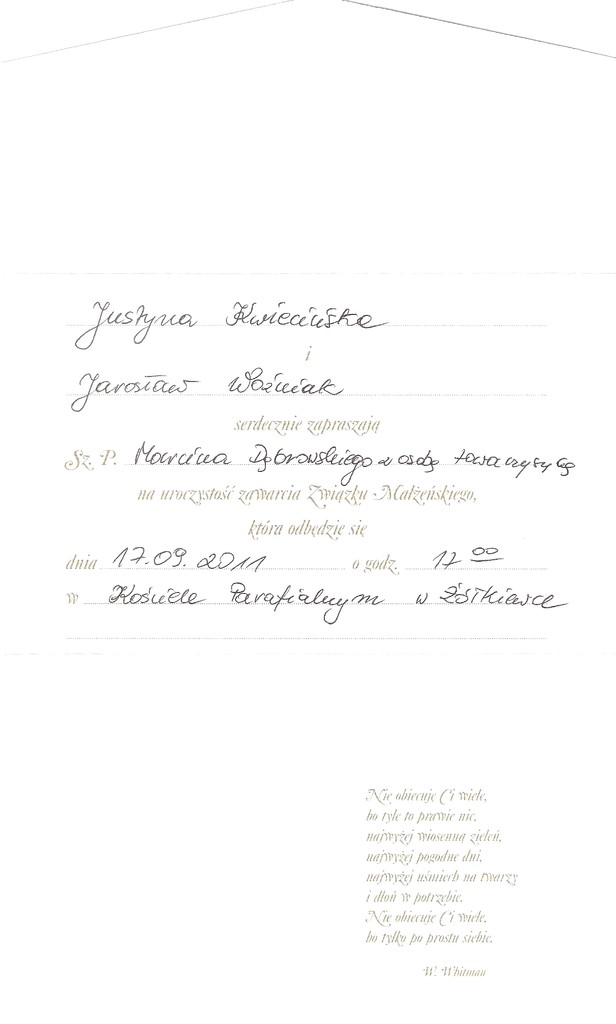 Justyna Kwiecińska
i
Jarosław Woźniak
serdecznie zapraszają
Sz. P. Marcina Dąbrowskiego z osobą towarzyszącą
na uroczystość zawarcia Związku Małżeńskiego,
która odbędzie się
dnia 17.09.2011 o godz. 17 00
w Kościele Parafialnym w Żółkiewce
Nie obiecuję Ci wiele,
bo tyle to prawie nic,
najwyżej wiosenną zieleń,
najwyżej pogodne dni,
najwyżej uśmiech na twarzy
i dłoń w potrzebie.
Nie obiecuję Ci wiele,
bo tylko po prostu siebie.
W. Whitman